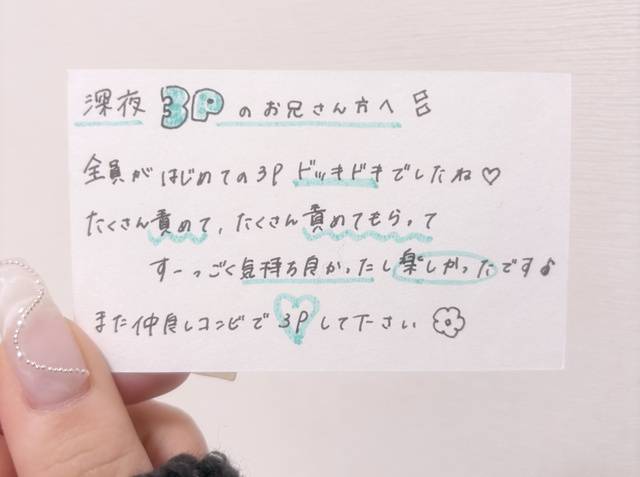 深夜 3P のお兄さん方へ
全員がはじめての3P ドッキドキでしたね♡
たくさん責めて、たくさん責めてもらって
すーっごく気持ち良かったし楽しかったです♪
また仲良しコンビで 3P して下さい